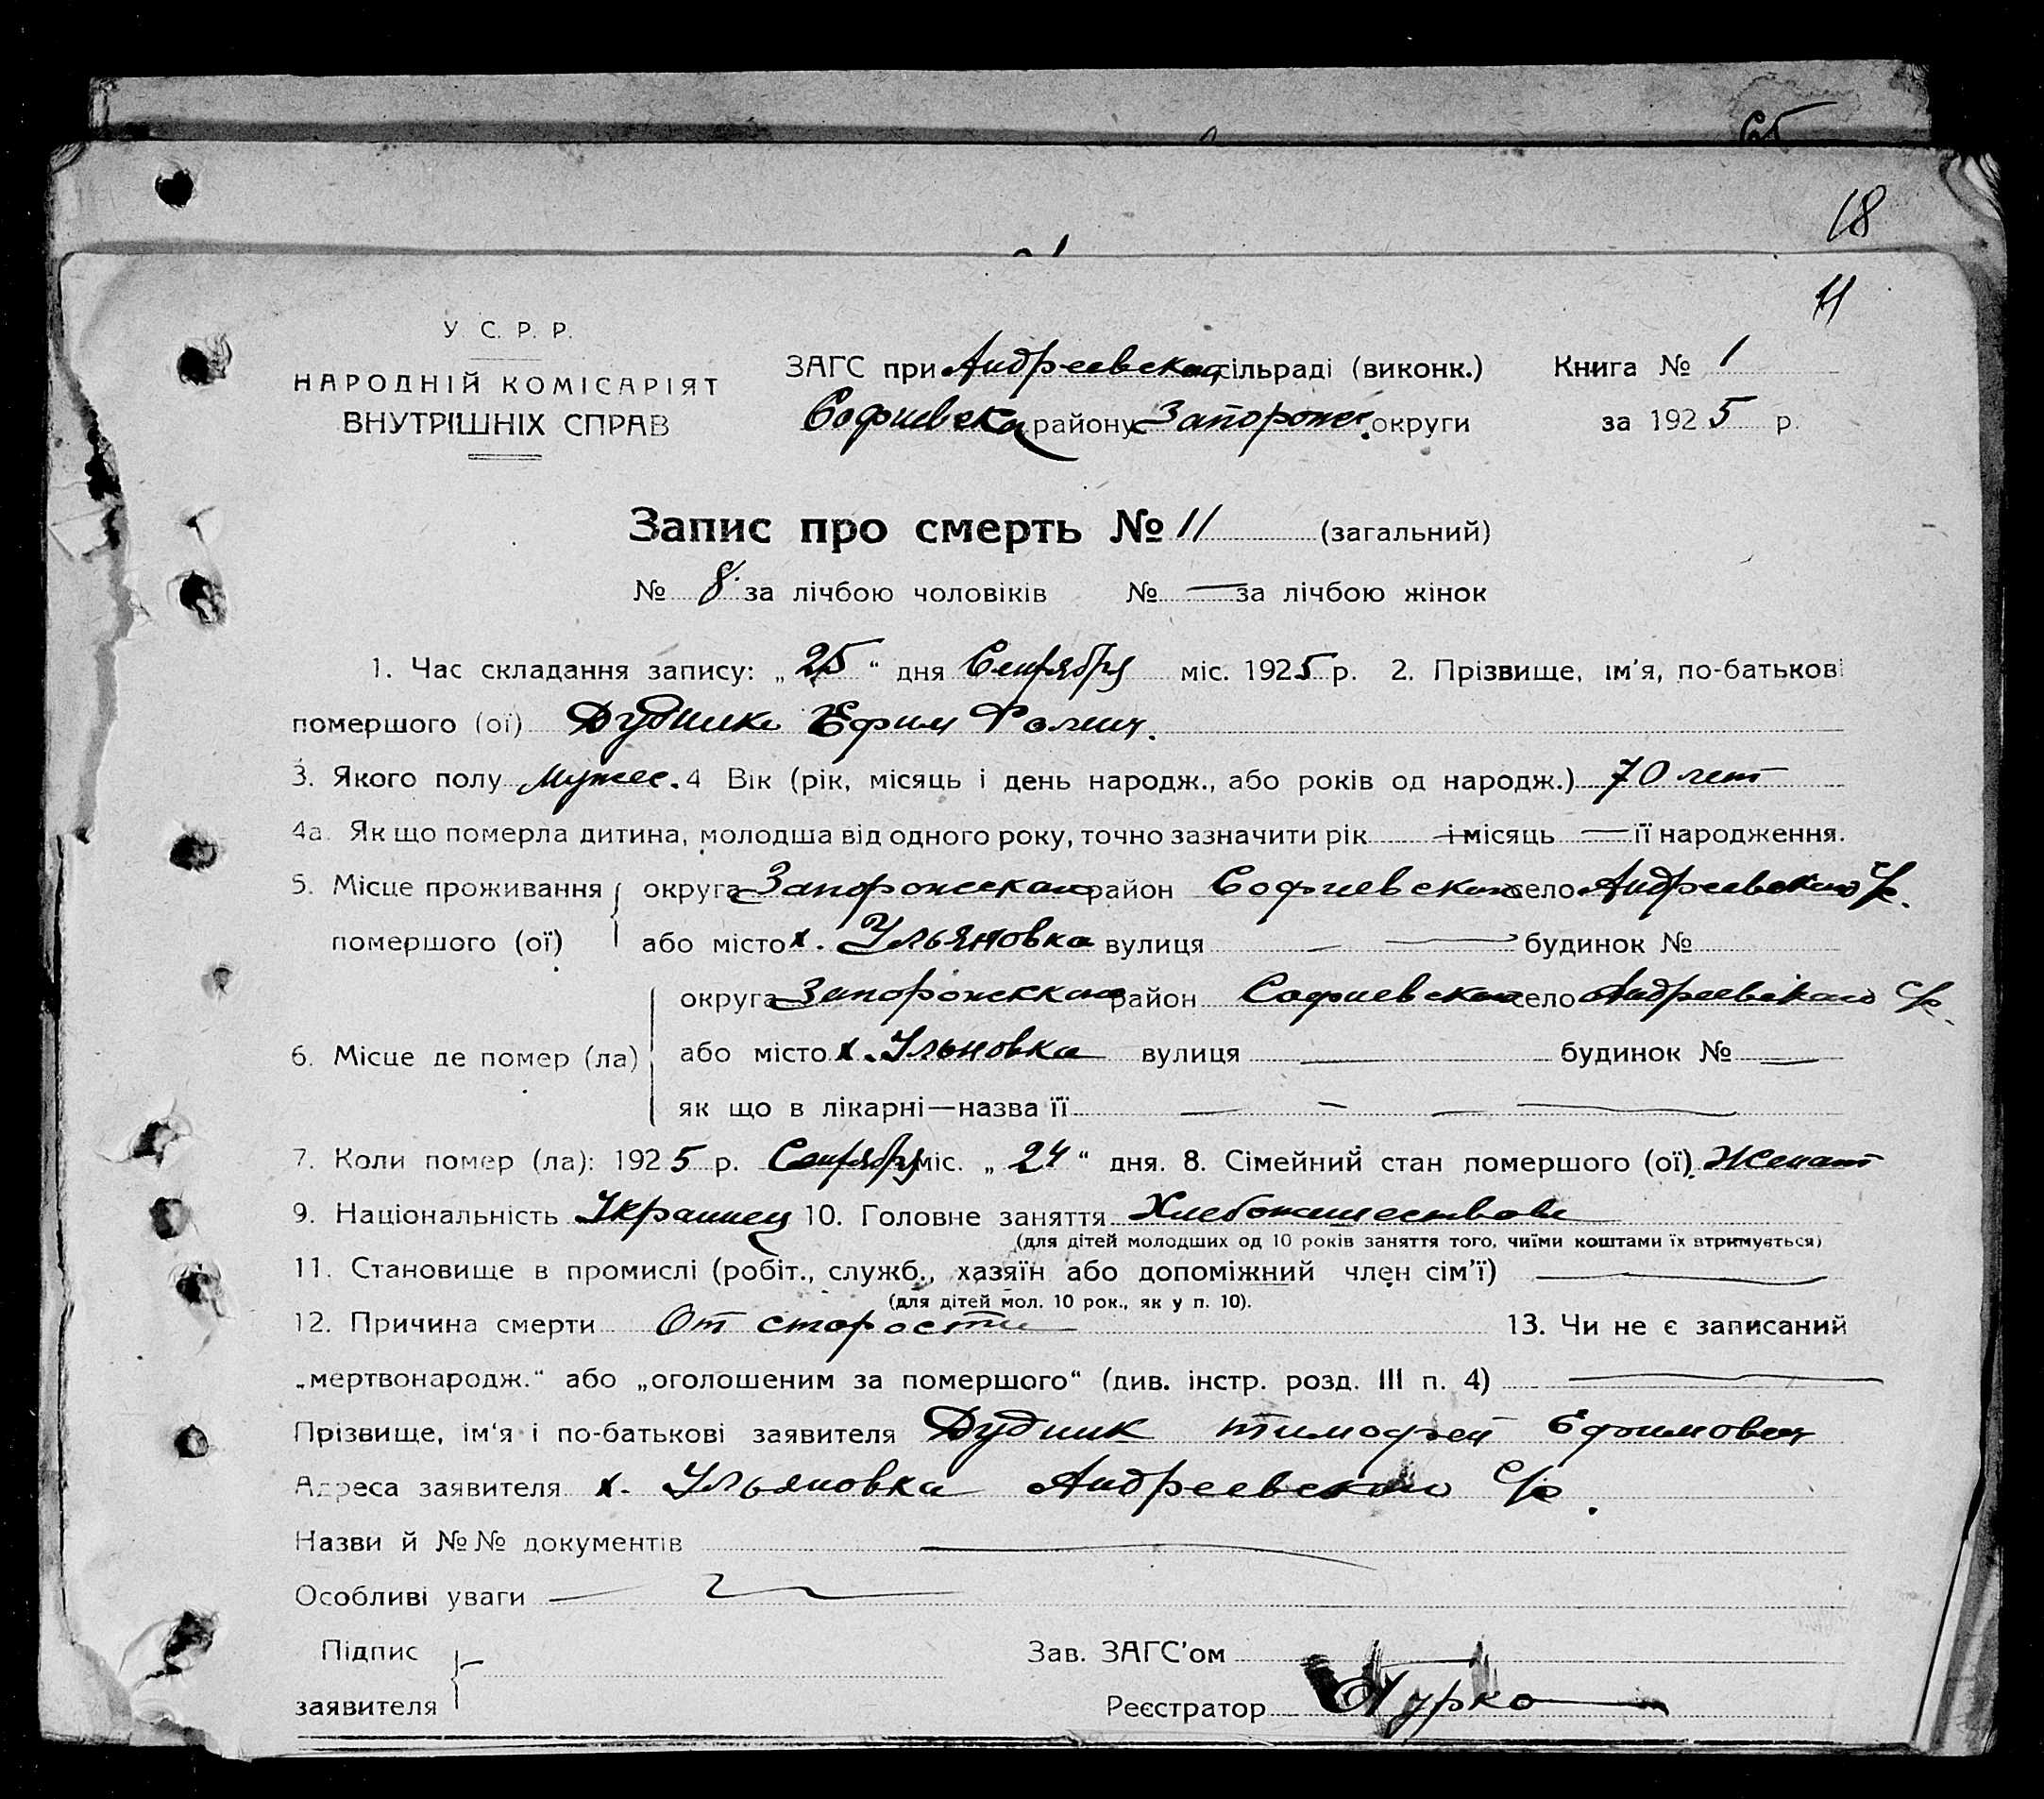 18
11
У. С. Р. Р.
НАРОДНІЙ КОМІСАРІЯТ
ВНУТРІШНІХ СПРАВ
ЗАГС при Андреевской сільраді (виконк.) Книга № 1
Софиевска району Запорож. округи за 1925 р.
Запис про смерть № 11 (загальний)
№ 8 за лічбою чоловіків № — за лічбою жінок
1. Час складання запису: „ 25 “ дня Сентября міс. 1925 р. 2. Прізвище, ім’я, по-батькові
помершого (ої) Дудника Ефим
3. Якого полу мужес. 4 Вік (рік, місяць і день народж., або років од народж.) 70 лет
4а. Як що померла дитина, молодша від одного року, точно зазначити рік — і місяць — її народження.
5. Місце проживання помершого (ої) округа Запорожская район Софиевского село Андреевского с/р.
або місто х. Ульяновка вулиця — — будинок №
6. Місце де помер (ла) округа Запорожская район Софиевского село Андреевского с/р.
або місто х. Ульновка вулиця — будинок № —
як що в лікарні—назва її — — — —
7. Коли помер (ла): 1925 р. Сентября міс. „ 24 “ дня. 8. Сімейний стан помершого (ої) Женат
9. Національність Украинец 10. Головне заняття
(для дітей молодших од 10 років заняття того, чиїми коштами їх втримується)
11. Становище в промислі (робіт., служб., хазяїн або допоміжний член сім’ї) —
(для дітей мол. 10 рок., як у п. 10).
12. Причина смерти От старости 13. Чи не є записаний
„мертвонародж.“ або „оголошеним за помершого“ (див. інстр. розд. III п. 4) —
Прізвище, ім’я і по-батькові заявителя Дудник тимофей Ефимович
Адреса заявителя х. Ульяновка Андреевского с/р.
Назви й №№ документів —
Особливі уваги —
Підпис
заявителя
Зав. ЗАГС’ом
Реєстратор